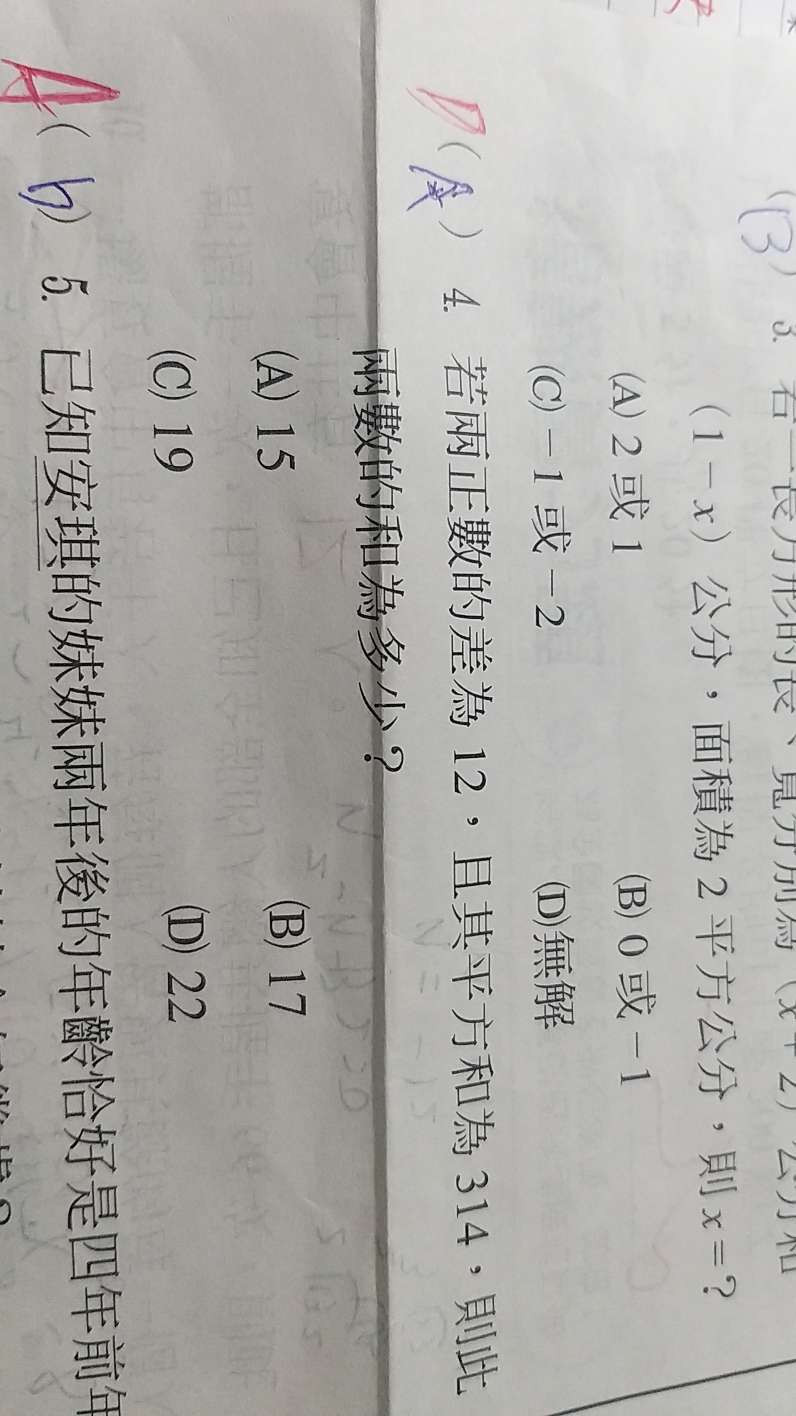 (B) 3. 若一長方形的長、寬分別為(x+2)公分和
(1-x)公分,面積為2平方公分,則x=?
(A) 2或1 (B) 0或-1
(C) -1或-2 (D)無解
D (A) 4. 若兩正數的差為12,且其平方和為314,則此
兩數的和為多少?
(A) 15 (B) 17
(C) 19 (D) 22
A (b) 5. 已知安琪的妹妹兩年後的年齡恰好是四年前年